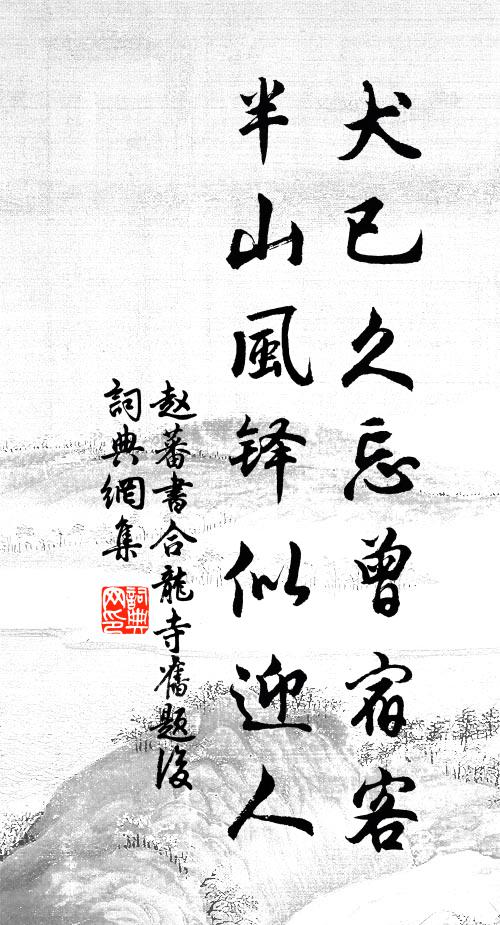 犬已久忘曾宿客
半山風铎似迎人
赵蕃書合龍寺舊題後
詞典網集
詞典
网印